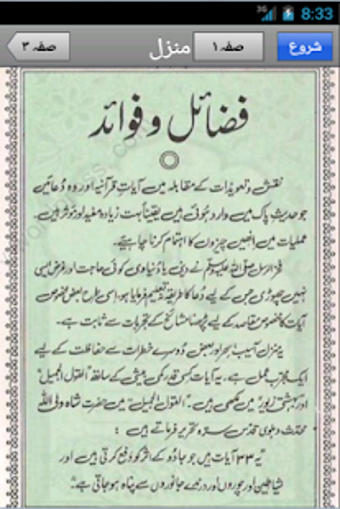 3G 8:33
شروع صفہ ١ منزل صفہ ٣
فضائل و فوائد
نقش و تعویذات کے مقابلہ میں آیات قرآنیہ اور وہ دعائیں
جو حدیث پاک میں وارد ہوئی ہیں یقیناً بہت زیادہ مفید اور موثر ہیں۔
عملیات میں انھیں چیزوں کا اہتمام کرنا چاہیے۔
فخر الرسل صلی اللہ علیہ وسلم نے دینی یا دنیاوی کوئی حاجت اور غرض ایسی
نہیں چھوڑی جس کے لیے دعا کا طریقہ تعلیم نہ فرمایا ہو، اسی طرح بعض مخصوص
آیات کا مخصوص مقاصد کے لیے پڑھنا مشائخ کے تجربات سے ثابت ہے۔
یہ منزل آسیب، سحر اور بعض دوسرے خطرات سے حفاظت کے لیے
ایک مجرب عمل ہے۔ یہ آیات کسی قدر کمی بیشی کے ساتھ "القول الجمیل"
اور بہشتی زیور" میں لکھی ہیں۔ "القول الجمیل" میں حضرت شاہ ولی اللہ
محدث دہلوی قدس سرہ تحریر فرماتے ہیں:
"یہ ٣٣ آیات ہیں جو جادو کے اثر کو دفع کرتی ہیں اور
شیاطین اور چوروں اور درندے جانوروں سے پناہ ہو جاتی ہے۔"